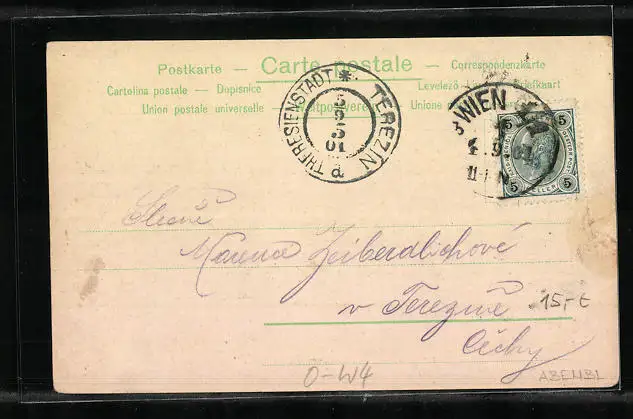 Postkarte — Carte postale — Correspondenzkarte
Cartolina postale — Dopisnice
Levelező - Briefkaart
Union postale universelle — Weltpostverein — Unione
THERESIENSTADT * TEREZÍN
5
9
5
01
a
3 WIEN
4.9.01
11-1 N
5 5
5 HELLER 5
Slečně
v Terezíně
Čechy
15,-€
O-W4